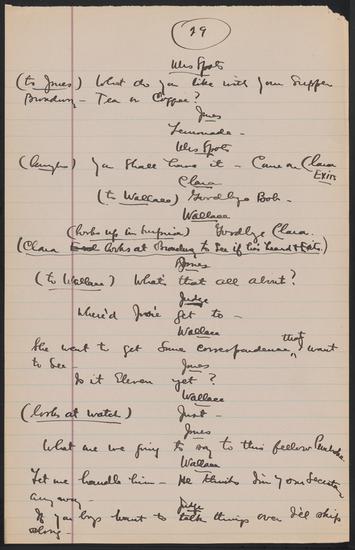 29
Mrs Spots
(to Jones) What do you like with your Supper
Broadway - Tea or Coffee?
Jones
Lemonade -
Mrs Spots
(laughs) You Shall have it - Come on Clara
Exits
Clara
(to Wallace) Goodbye Bob -
Wallace
(looks up in surprise) Goodbye Clara.
(Clara looks at Broadway to see if he's heard & Exits.)
Jones
(to Wallace) What's that all about?
Judge
Where'd Josie get to -
Wallace
She went to get some correspondence that I want
to see -
Jones
Is it Eleven yet?
Wallace
(looks at watch) Just -
Jones
What are we going to say to this fellow
Wallace
Let me handle him - He thinks I'm your Secretary
anyway -
Judge
If you boys want to talk things over I'll skip
along -